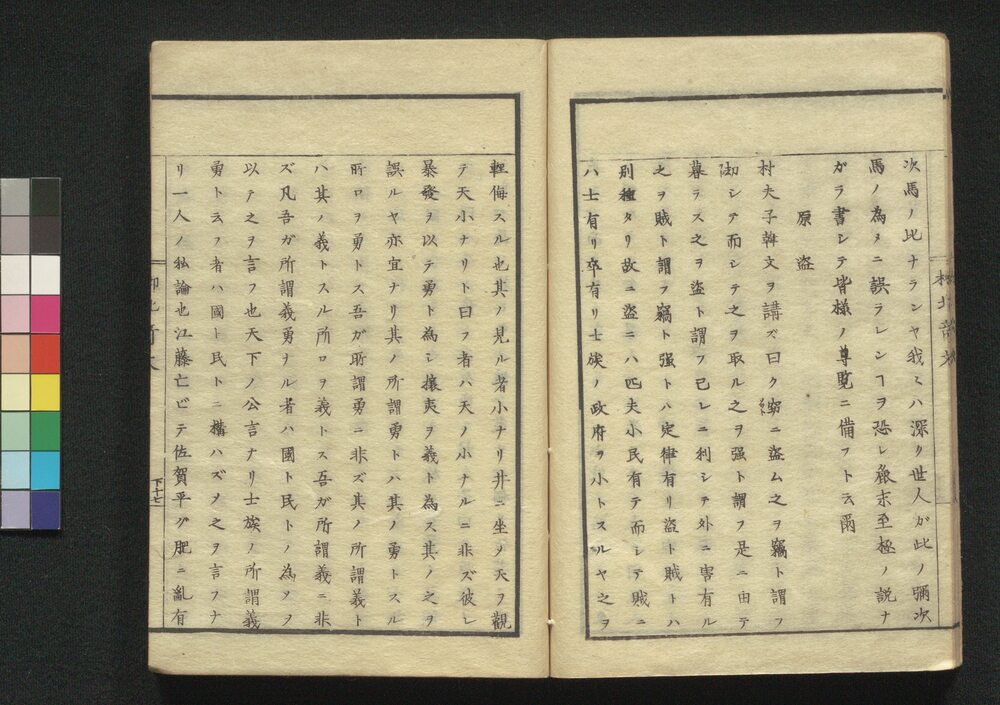 次馬ノ比ナランヤ我ミハ深ク世人ガ此ノ彌次
馬ノ為メニ誤ラレンヿヲ恐レ麁末至極ノ説ナ
ガラ書シテ皆様ノ尊覧ニ備フト云爾
原盗
村夫子韓文ヲ講ズ曰ク窃ニ盗ム之ヲ竊ト謂フ
劫シテ而シテ之ヲ取ル之ヲ强ト謂フ是ニ由テ
暮ラス之ヲ盗ト謂フ己レニ利シテ外ニ害有ル
之ヲ賊ト謂フ竊ト强トハ定律有リ盗ト賊トハ
別種タリ故ニ盗ニハ匹夫小民有テ而シテ賊ニ
ハ士有リ卒有リ士族ノ政府ヲ小トスルヤ之ヲ
下十七
輕侮スル也其ノ見ル者小ナリ井ニ坐シテ天ヲ觀
テ天小ナリト曰フ者ハ天ノ小ナルニ非ズ彼レ
暴發ヲ以テ勇ト為シ攘夷ヲ義ト為ス其ノ之ヲ
誤ルヤ亦宜ナリ其ノ所謂勇トハ其ノ勇トスル
所ロヲ勇トス吾ガ所謂勇ニ非ズ其ノ所謂義ト
ハ其ノ義トスル所ロヲ義トス吾ガ所謂義ニ非
ズ凡吾ガ所謂義勇ナル者ハ國ト民トノ為ヲ
以テ之ヲ言フ也天下ノ公言ナリ士族ノ所謂義
勇ト云フ者ハ國ト民トニ構ハズメ之ヲ言フナ
リ一人ノ私論也江藤亡ビテ佐賀平グ肥ニ亂有